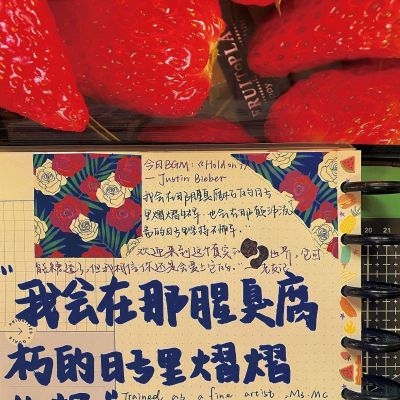 FRUIT PLA
今日BGM:《Hold on》
— Justin Bieber
我会在那腥臭腐朽的日子
里熠熠生辉，也会在那颠沛流
离的日子里坚持不懈。"
"欢迎来到这个真实的 世界，它可
能糟透了，但我相信你还是会爱上它的。" 老友记
"我会在那腥臭腐
朽的日子里熠熠
Trained as a fine artist, Ms. MC
20 21